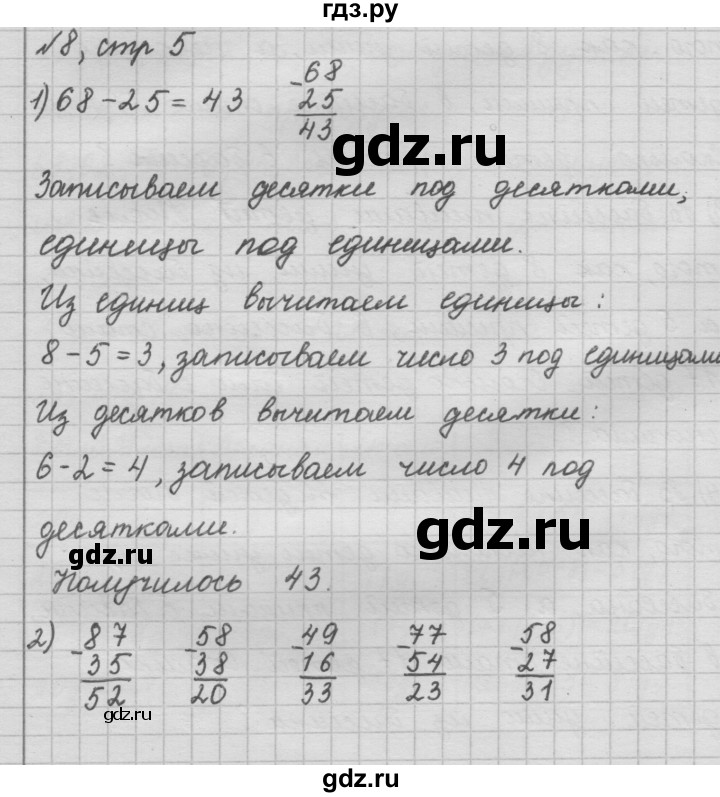 гдз.ру
№8, стр 5
1) 68-25= 43
-68
25
43
gdz.ru
Записываем десятки под десятками,
единицы под единицами.
Из единиц вычитаем единицы:
8-5=3, записываем число 3 под единицами
Из десятков вычитаем десятки:
6-2=4, записываем число 4 под
десятками.
gdz.ru
gdz.ru
Получилось 43.
2) -87 -58 -49 -77 -58
35 38 16 54 27
52 20 33 23 31
gdz.ru